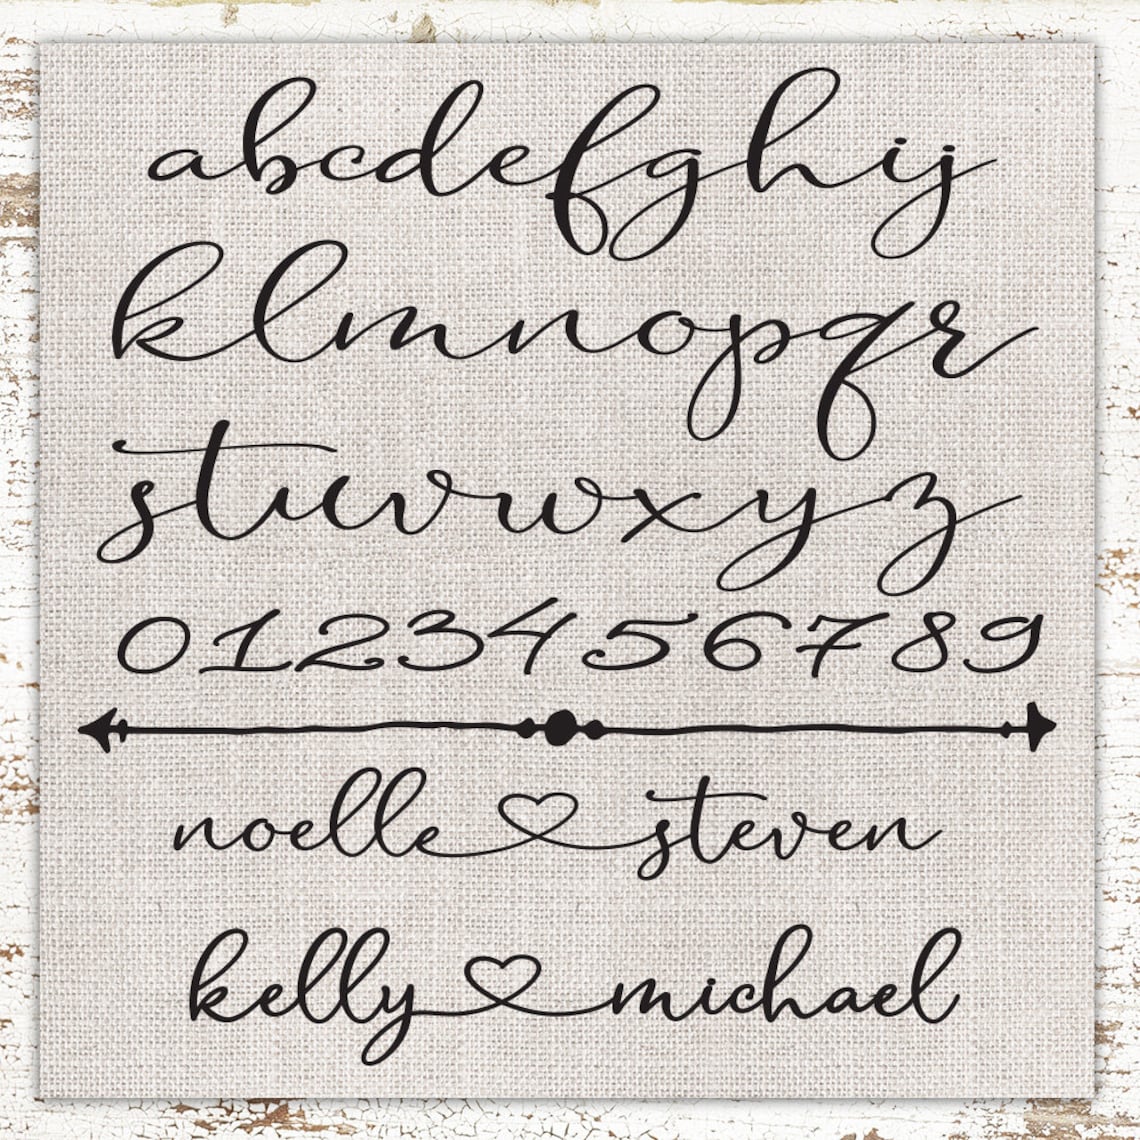 abcdefghij
klmnopqr
stuvwxyz
0123456789
noelle steven
kelly michael